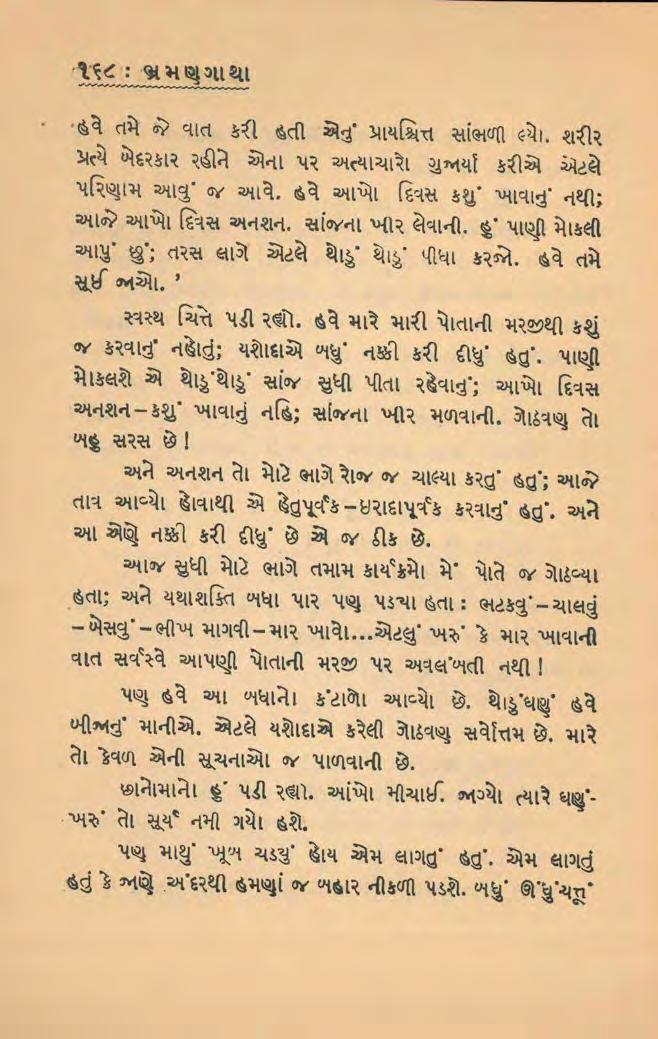 ૧૬૮ : ભ્રમણગાથા
‘હવે તમે જે વાત કરી હતી એનું પ્રાયશ્ચિત્ત સાંભળી લ્યો. શરીર
પ્રત્યે બેદરકાર રહીને એના પર અત્યાચારો ગુજાર્યા કરીએ એટલે
પરિણામ આવું જ આવે. હવે આખો દિવસ કશું ખાવાનું નથી;
આજે આખો દિવસ અનશન. સાંજના ખીર લેવાની. હું પાણી મોકલી
આપું છું; તરસ લાગે એટલે થોડું થોડું પીધા કરજો. હવે તમે
સૂઈ જાઓ. ’
સ્વસ્થ ચિત્તે પડી રહ્યો. હવે મારે મારી પોતાની મરજીથી કશું
જ કરવાનું નહોતું; યશોદાએ બધું નક્કી કરી દીધું હતું. પાણી
મોકલશે એ થોડુંથોડું સાંજ સુધી પીતા રહેવાનું; આખો દિવસ
અનશન–કશું ખાવાનું નહિ; સાંજના ખીર મળવાની. ગોઠવણ તો
બહુ સરસ છે !
અને અનશન તો મોટે ભાગે રોજ જ ચાલ્યા કરતું હતું; આજે
તાવ આવ્યો હોવાથી એ હેતુપૂર્વક–ઇરાદાપૂર્વક કરવાનું હતું. અને
આ એણે નક્કી કરી દીધું છે એ જ ઠીક છે.
આજ સુધી મોટે ભાગે તમામ કાર્યક્રમો મેં પોતે જ ગોઠવ્યા
હતા; અને યથાશક્તિ બધા પાર પણ પડ્યા હતા : ભટકવું–ચાલવું
–બેસવું–ભીખ માગવી–માર ખાવો...એટલું ખરું કે માર ખાવાની
વાત સર્વસ્વે આપણી પોતાની મરજી પર અવલંબતી નથી !
પણ હવે આ બધાનો કંટાળો આવ્યો છે. થોડુંઘણું હવે
બીજાનું માનીએ. એટલે યશોદાએ કરેલી ગોઠવણ સર્વોત્તમ છે. મારે
તો કેવળ એની સૂચનાઓ જ પાળવાની છે.
છાનોમાનો હું પડી રહ્યો. આંખો મીચાઈ. જાગ્યો ત્યારે ઘણું-
ખરું તો સૂર્ય નમી ગયો હશે.
પણ માથું ખૂબ ચડ્યું હોય એમ લાગતું હતું. એમ લાગતું
હતું કે જાણે અંદરથી હમણાં જ બહાર નીકળી પડશે. બધું ઊંધુંચત્તું